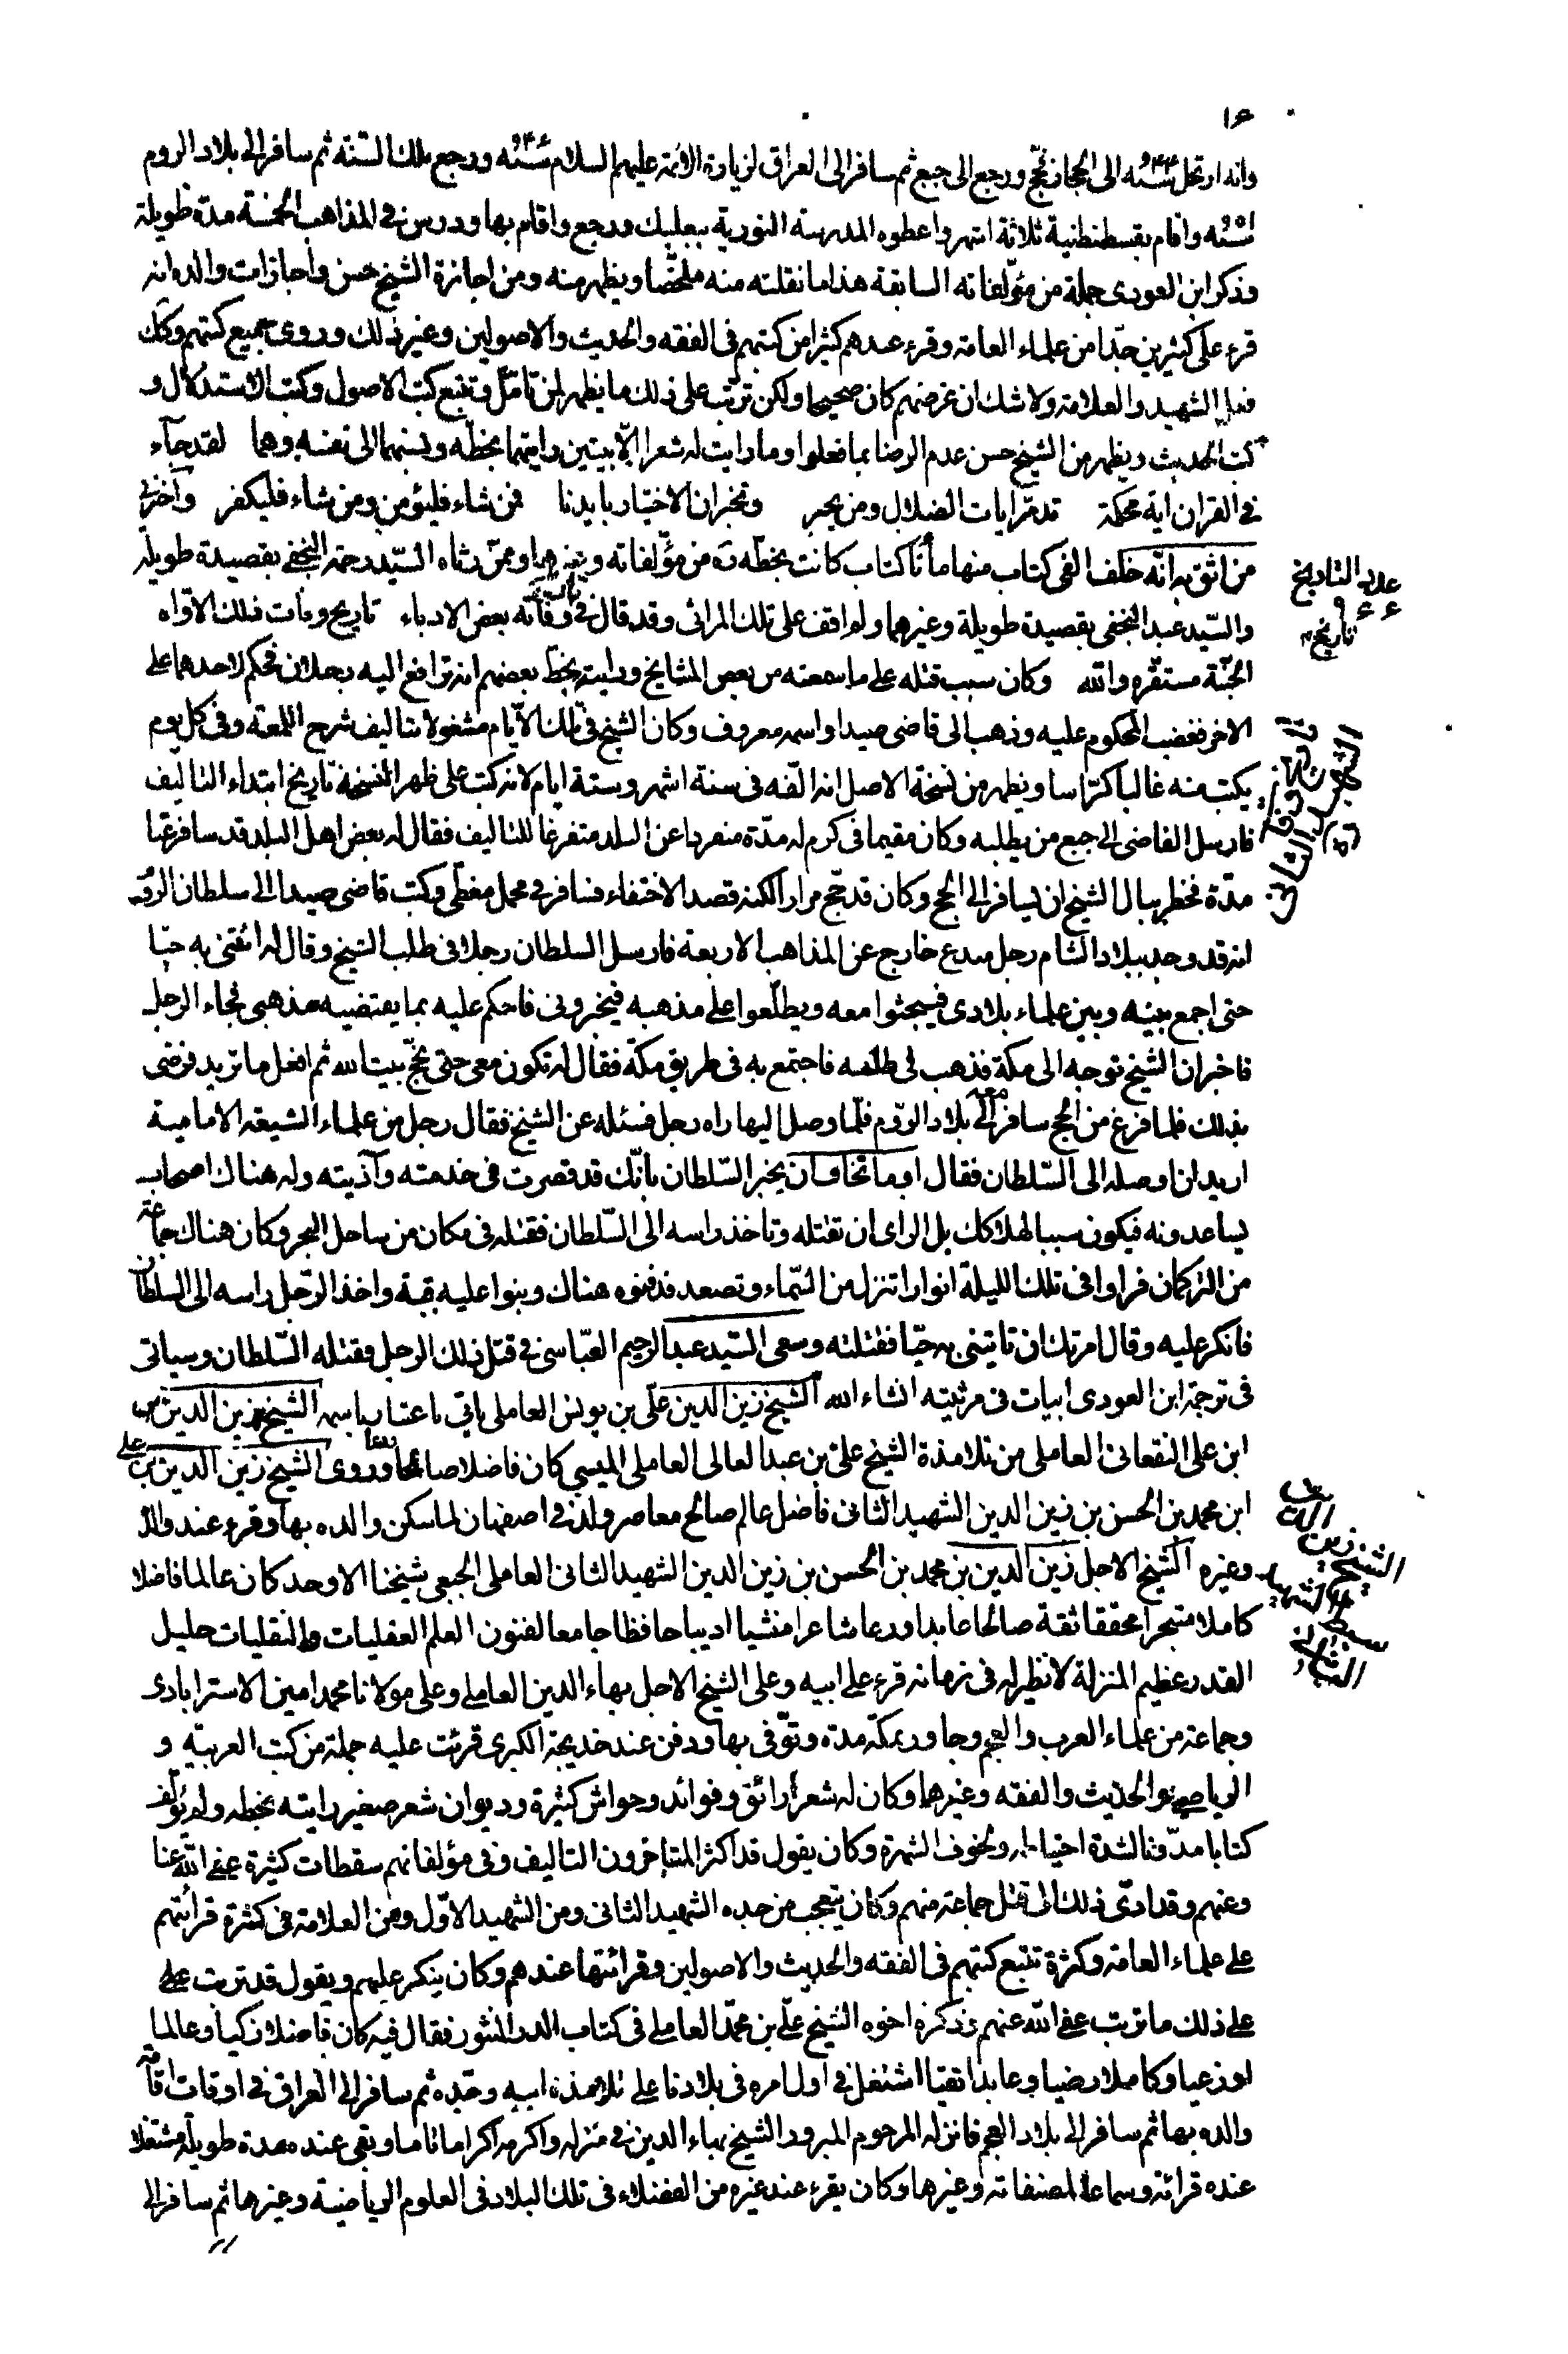 ١٦
وانه ارتحل سنة ٩٤٤ الى الحجاز فحج ورجع الى جبع ثم سافر الى العراق لزيارة الائمة عليهم السلام سنة ٩٤٦ ورجع بتلك السنة ثم سافر الى بلاد الروم
سنة ٩٥١ واقام بقسطنطنية ثلاثة اشهر واعطوه المدرسة النورية ببعلبك ورجع واقام بها ودرس في المذاهب الخمسة مدة طويلة
وذكر ابن العودى جملة من مؤلفاته السابقة هذا ما نقلته منه ملخصا ويظهر منه ومن اجازة الشيخ حسن واجازات والده انه
قرء على كثيرين جدا من علماء العامة وقرء عندهم كثيرا من كتبهم فى الفقه والحديث والاصولين وغير ذلك وروى جميع كتبهم وكك
فعل الشهيد والعلامة ولا شك ان غرضهم كان صحيحا ولكن ترتب على ذلك ما يظهر لمن تامل وتتبع كتب الاصول وكتب الاستدلال و
كتب الحديث ويظهر من الشيخ حسن عدم الرضا بما فعلوا وما رايت له شعرا الا بيتين رايتهما بخطه ونسبهما الى نفسه وهما لقد جاء
في القران اية محكمة تدمر ايات الضلال ومن يجبر وتخبر ان الاختيار بايدنا فمن شاء فليؤمن ومن شاء فليكفر واخبرني
من اثق به انه خلف الفى كتاب منها مأتا كتاب كانت بخطه ره من مؤلفاته وغيرها وممن رثاه السيد رحمة النجفي بقصيدة طويلة
والسيد عبد النجفى بقصيدة طويلة وغيرهما ولم اقف على تلك المراثى وقد قال فى تاريخ وفاته بعض الادباء تاريخ وفات ذلك الاواه
الجنة مستقره والله وكان سبب قتله على ما سمعته من بعض المشايخ ورايته بخط بعضهم انه ترافع اليه رجلان فحكم لاحدهما على
الاخر فغضب المحكوم عليه وذهب الى قاضى صيدا واسمه معروف وكان الشيخ فى تلك الايام مشغولا بتاليف شرح اللمعة وفى كل يوم
يكتب منه غالبا كراسا ويظهر من نسخة الاصل انه الفه فى ستة اشهر وستة ايام لانه كتب على ظهر النسخة تاريخ ابتداء التاليف
فارسل القاضى الى جبع من يطلبه وكان مقيما فى كرم له مدة منفردا عن البلد متفرغا للتاليف فقال له بعض اهل البلد قد سافر عنا
مدة فخطر ببال الشيخ ان يسافر الى الحج وكان قد حج مرارا لكنه قصد الاختفاء فسافر في محمل مغطى وكتب قاضى صيدا الى سلطان الروم
انه قد وجد ببلاد الشام رجل مبدع خارج عن المذاهب الاربعة فارسل السلطان رجلا فى طلب الشيخ وقال له ائتنى به حيا
حتى اجمع بينه وبين علماء بلادى فيبحثوا معه ويطلعوا على مذهبه فيخبرونى فاحكم عليه بما يقتضيه مذهبى فجاء الرجل
فاخبر ان الشيخ توجه الى مكة فذهب فى طلبه فاجتمع به فى طريق مكة فقال له تكون معى حتى نحج بيت الله ثم افعل ما تريد فرضى
بذلك فلما فرغ من الحج سافر معه الى بلاد الروم فلما وصل اليها راه رجل فسئله عن الشيخ فقال رجل من علماء الشيعة الامامية
اريد ان اوصله الى السلطان فقال اوما تخاف ان يخبر السلطان بانك قد قصرت فى خدمته وآذيته وله هناك اصحاب
يساعدونه فيكون سببا لهلاكك بل الراى ان تقتله وتاخذ راسه الى السلطان فقتله فى مكان من ساحل البحر وكان هناك جماعة
من التركمان فراوا فى تلك الليلة انوارا تنزل من السماء وتصعد فدفنوه هناك وبنوا عليه قبة واخذ الرجل راسه الى السلطان
فانكر عليه وقال امرتك ان تاتينى به حيا فقتلته وسعى السيد عبد الرحيم العباسى فى قتل ذلك الرجل فقتله السلطان وسياتى
فى ترجمة ابن العودى ابيات فى مرثيته انشاء الله الشيخ زين الدين على بن يونس العاملى ياتى باعتبار اسمه الشيخ زين الدين
ابن على الفقعانى العاملى من تلامذة الشيخ على بن عبد العالى العاملى الميسي كان فاضلا صالحا ورعا وروى الشيخ زين الدين بن على
ابن محمد بن الحسن بن زين الدين الشهيد الثانى فاضل عالم صالح معاصر ولد فى اصفهان لما سكن والده بها وقرء عند والده
وغيره الشيخ الاجل زين الدين بن محمد بن الحسن بن زين الدين الشهيد الثانى العاملى الجبعى شيخنا الاوحد كان عالما فاضلا
كاملا متبحرا محققا ثقة صالحا عابدا ورعا شاعرا منشيا اديبا حافظا جامعا لفنون العلم العقليات والنقليات جليل
القدر عظيم المنزلة لا نظير له فى زمانه قرء على ابيه وعلى الشيخ الاجل بهاء الدين العاملى وعلى مولانا محمد امين الاسترابادى
وجماعة من علماء العرب والعجم وجاور بمكة مدة وتوفى بها ودفن عند خديجة الكبرى قرئت عليه جملة من كتب العربية و
الرياضي والحديث والفقه وغيرها وكان له شعر رائق وفوائد وحواش كثيرة وديوان شعر صغير رايته بخطه ولم يؤلف
كتابا مدونا لشدة احتياطه ولخوف الشهرة وكان يقول قد اكثر المتاخرون التاليف وفى مؤلفاتهم سقطات كثيرة عفى الله عنا
وعنهم وقد ادى ذلك الى قتل جماعة منهم وكان يتعجب من جده الشهيد الثانى ومن الشهيد الاول ومن العلامة فى كثرة قرائتهم
على علماء العامة وكثرة تتبع كتبهم فى الفقه والحديث والاصولين وقرائتها عندهم وكان ينكر عليهم ويقول قد ترتب على
على ذلك ما ترتب عفى الله عنهم وذكره اخوه الشيخ على بن محمد العاملى فى كتاب الدر المنثور فقال فيه كان فاضلا زكيا وعالما
لوذعيا وكاملا رضيا وعابدا تقيا اشتغل فى اول امره فى بلادنا على تلامذة ابيه وجده ثم سافر الى العراق فى اوقات اقامة
والده بها ثم سافر الى بلاد العجم فانزله المرحوم المبرور الشيخ بهاء الدين فى منزله واكرمه اكراما تاما وبقى عنده مدة طويلة مشتغلا
عنده قرائة وسماعا لمصنفاته وغيرها وكان يقرء عند غيره من الفضلاء فى تلك البلاد فى العلوم الرياضية وغيرها ثم سافر الى
عدد التاريخ
٩٦٦
تاريخ
الشهيد الثانى
الشيخ زين
سبط الشهيد
الثانى